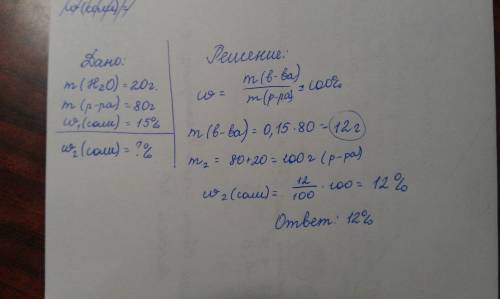 Дано:
m(H₂O) = 20г.
m(р-ра) = 80г
w₁(соли) = 15%
w₂(соли) = ?%
Решение:
w = m(в-ва)/m(р-ра) * 100%
m(в-ва) = 0,15·80 = 12г
m₂ = 80+20 = 100г (р-ра)
w₂(соли) = 12/100 · 100 = 12%
Ответ: 12%